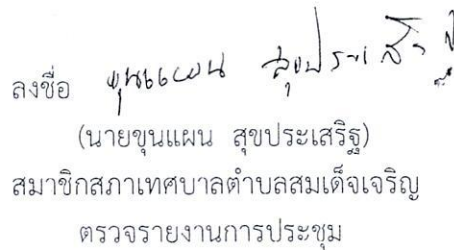 ลงชื่อ ขุนแผน สุขประเสริฐ
(นายขุนแผน สุขประเสริฐ)
สมาชิกสภาเทศบาลตำบลสมเด็จเจริญ
ตรวจรายงานการประชุม